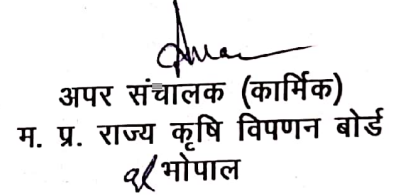 अपर संचालक (कार्मिक)
म. प्र. राज्य कृषि विपणन बोर्ड
भोपाल